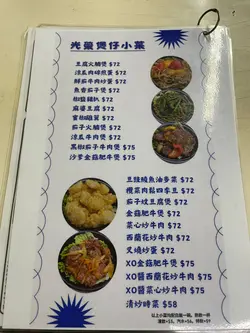 光景煲仔小菜
豆腐火腩煲 $72
涼瓜肉碎煎蛋 $72
鮮茄牛肉炒蛋 $72
魚香茄子煲 $72
椒鹽雞扒 $72
麻婆豆腐 $72
蜜椒雞翼 $72
茄子火腩煲 $72
涼瓜炆牛肉 $72
黑椒茄子牛肉煲 $75
沙爹金菇肥牛煲 $75
豆豉鯪魚油麥菜 $72
欖菜肉鬆四季豆 $72
茄子炆豆腐煲 $72
金菇肥牛煲 $72
菜心炒牛肉 $72
西蘭花炒牛肉 $72
叉燒炒蛋 $72
XO金菇肥牛煲 $75
XO醬西蘭花炒牛肉 $75
XO醬菜心炒牛肉 $75
清炒時菜 $58